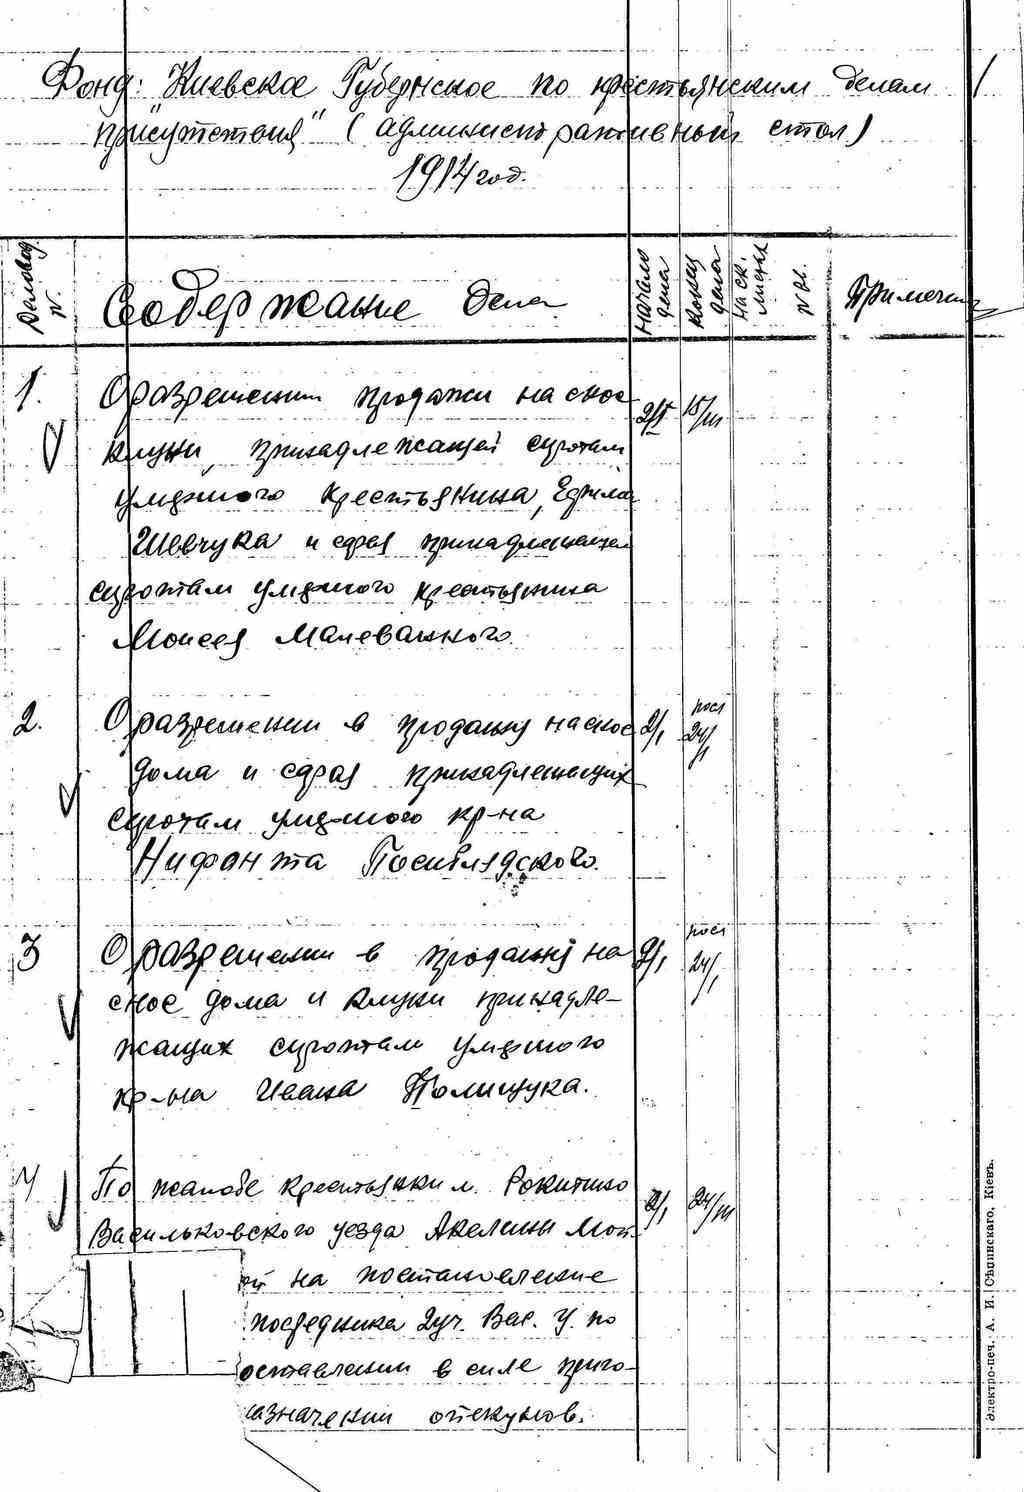 Фонд: "Киевское Губернское по крестьянским делам 1
присутствия" (административный стол)
1914 год.
Содержание дела
начало дела
конец дела
на ск. листах
№№.
Примечан
1. О разрешении продажи на снос 15/III
клуни, принадлежащей сиротам
умершого крестьянина,
Шевчука и сарая принадлежащей
сиротам умершого крестьянина
Моисея Малеванного.
2. О разрешении в продажу на снос 2/I посл 24/I
дома и сарая принадлежащих
сиротам умершого кр-на
Нифанта
3 О разрешении в продажу на 2/I посл 24/I
снос дома и клуни принадле-
жащих сиротам умершого
кр-на Ивана Полищука.
4 По жалобе крестьянки м. Рокитно 2/I 24/III
Васильковского уезда Акелины
на постановление
посредника 2 уч. Вас. у. по
оставлении в силе приго-
опекунов.
Электро-печ. А. И. Сѣпинскаго, Кіевъ.